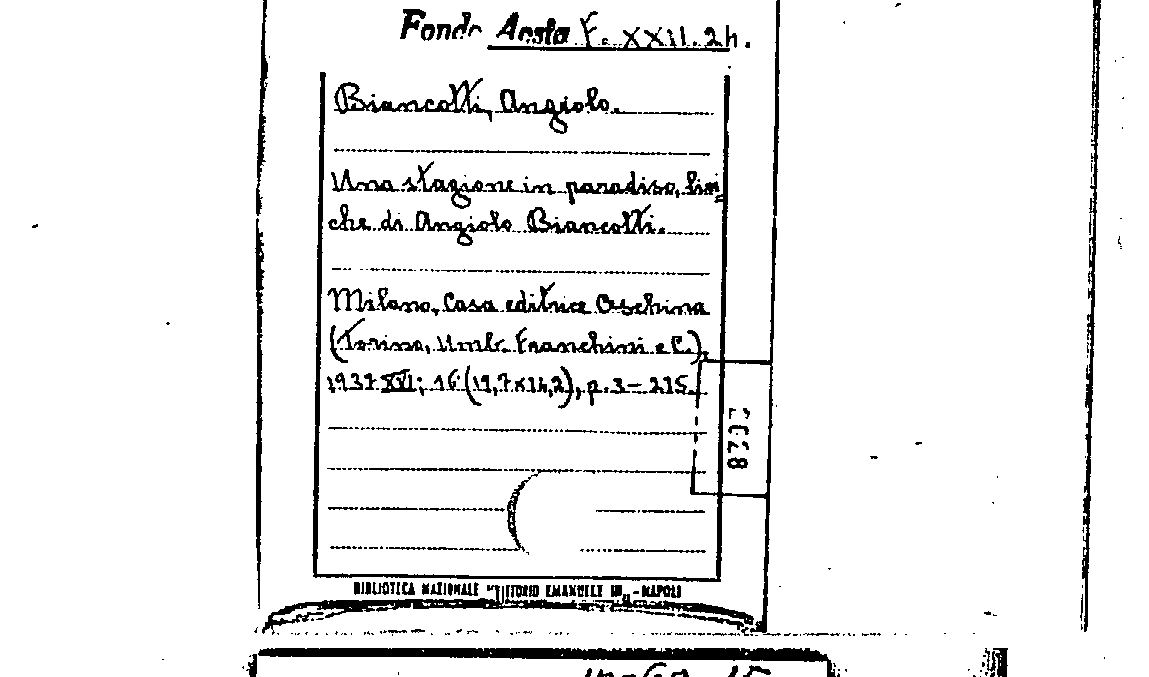 Fondo Aosta F. XXII. 24.
Biancotti, Angiolo.
Una stagione in paradiso, liri=
che di Angiolo Biancotti.
Milano, Casa editrice Ceschina
(Torino, Umb. Franchini e C.),
1937 XVI; 16° (19,7x14,2), p. 3-215.
2028
BIBLIOTECA NAZIONALE "VITTORIO EMANUELE III" - NAPOLI